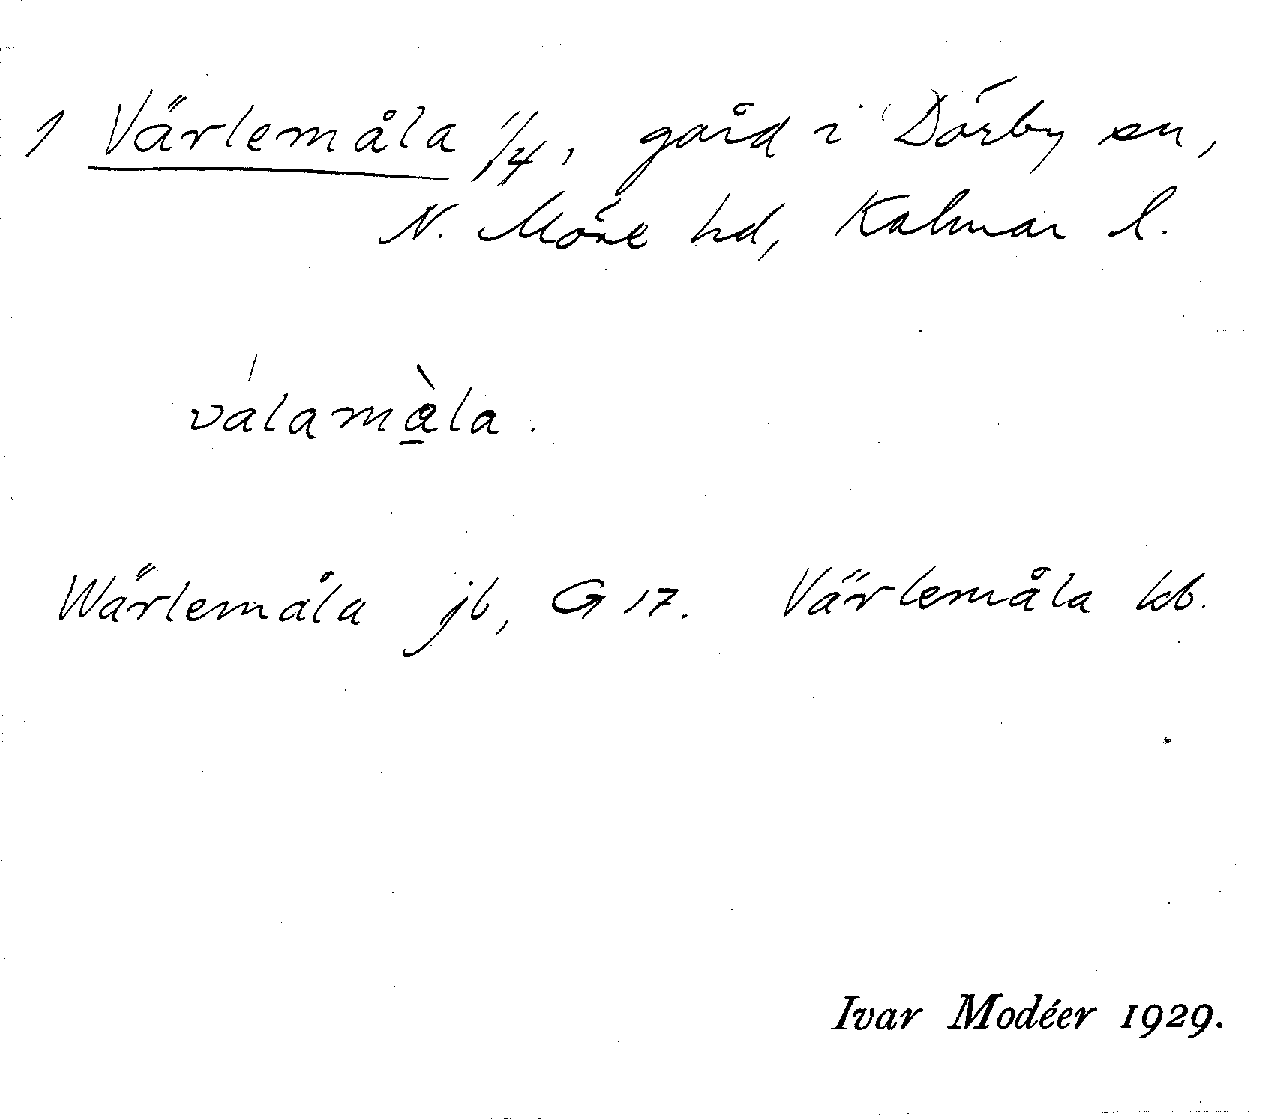 1 Värlemåla 1/4, gård i Dörby sn,
N. Möre hd, Kalmar l.
válamàla.
Wärlemåla jb, G 17. Värlemåla kb.
Ivar Modéer 1929.